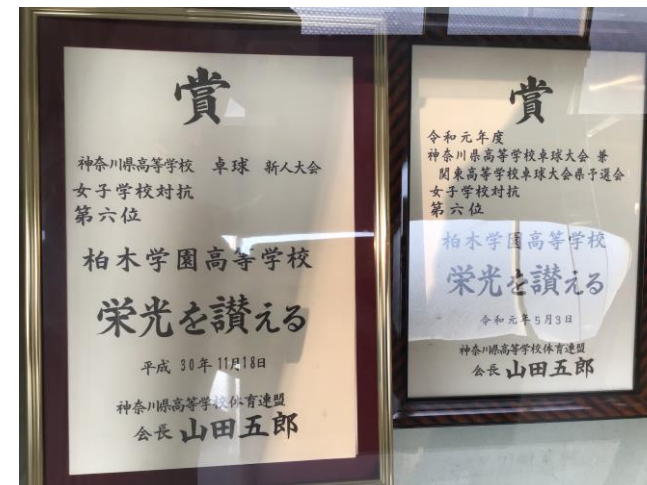 賞
神奈川県高等学校 卓球 新人大会
女子学校対抗
第六位
柏木学園高等学校
栄光を讃える
平成 30年11月18日
神奈川県高等学校体育連盟
会長 山田五郎
賞
令和元年度
神奈川県高等学校卓球大会 兼
関東高等学校卓球大会県予選会
女子学校対抗
第六位
柏木学園高等学校
栄光を讃える
令和元年5月3日
神奈川県高等学校体育連盟
会長 山田五郎